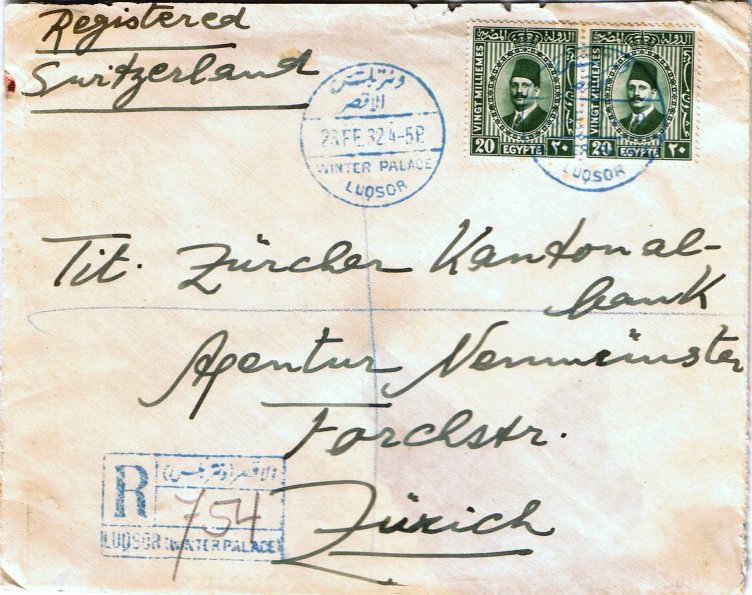 Registered
Switzerland
ونتر بلس
الاقصر
23.FE.32.4-5P
WINTER PALACE
LUQSOR
الدولة المصرية
VINGT MILLIEMES
20 EGYPTE ٢٠
الدولة المصرية
VINGT MILLIEMES
20 EGYPTE ٢٠
LUQSOR
Tit. Zürcher Kantonal-
bank
Agentur Neumünster
Forchstr.
Zürich
R
الاقصر (ونتر بلس)
754
LUQSOR (WINTER PALACE)